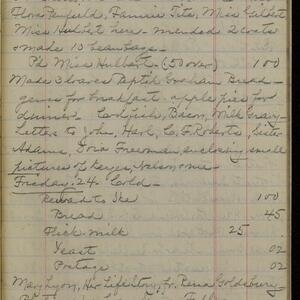 Flora Penfield, Fannie Tite, Miss Gilbert
Miss Hulbert here - mended 2 coats
& made 10 bean bags -
Pd Miss Hulbert - (50 over) 100
Made 3 loaves Peptid Graham Bread -
gems for breakfast - apple pies for
dinner - Codfish, Bacon, Milk Gravy -
Letters to John, Harl, C. F. Roberts, Sister
Adams, Freeman, enclosing small
pictures of Keyes, Nelson, me -
Friday. 24. Cold -
reward to Ike 100
Bread 45
Peck milk 25
Yeast 02
Postage 02
Mary Lyon, Her Life Story, Fr. Goldsbury -